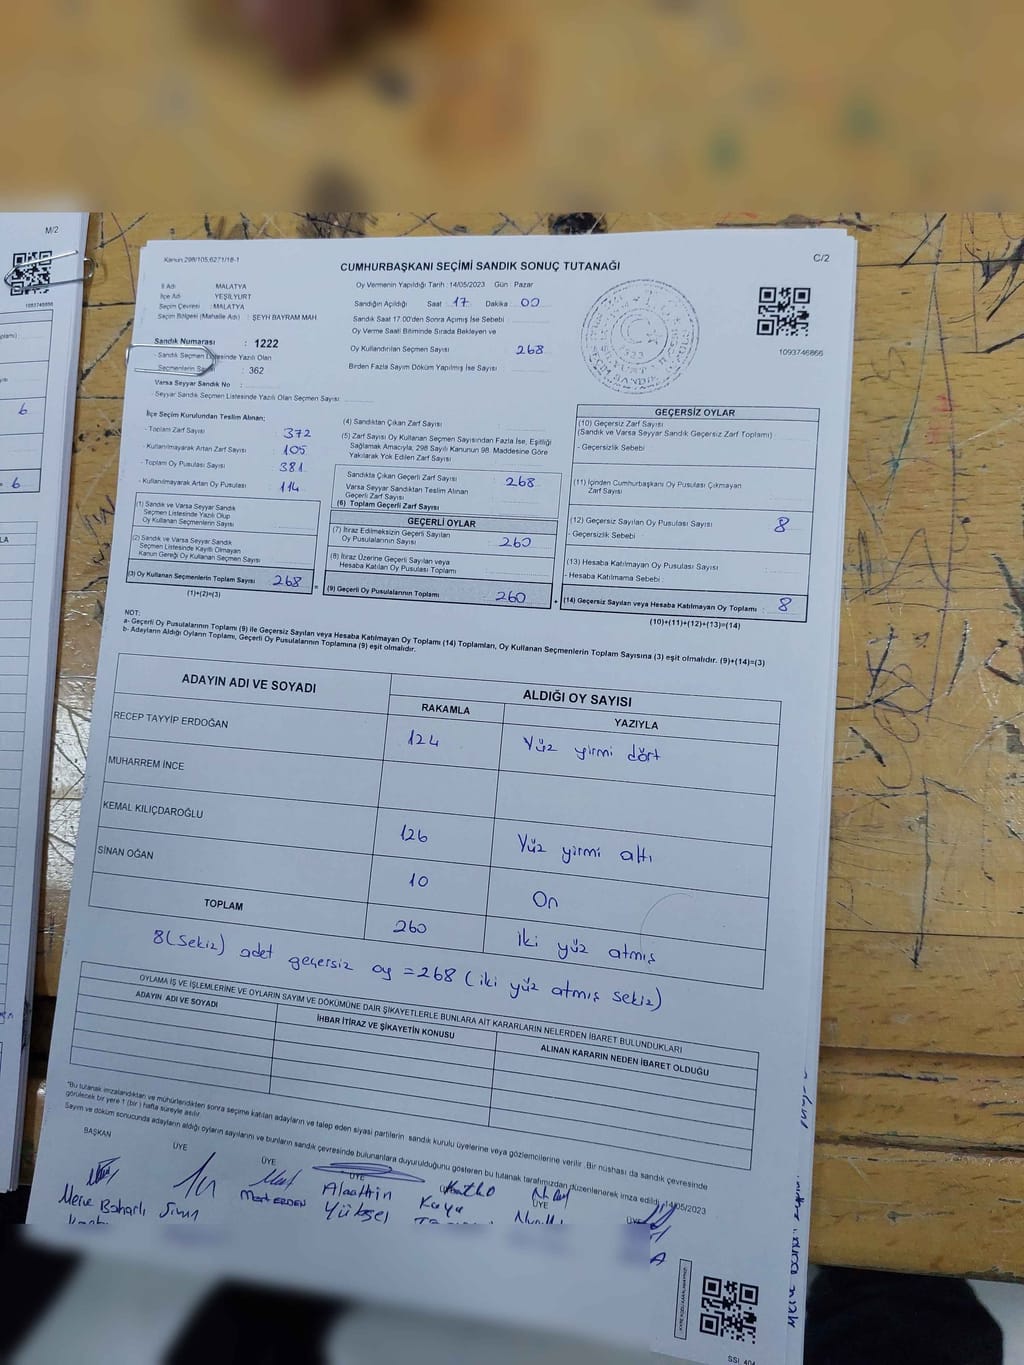 M/2
1093746866
6
6
Kanun:298/105,6271/18-1
CUMHURBAŞKANI SEÇİMİ SANDIK SONUÇ TUTANAĞI
C/2
İl Adı : MALATYA
İlçe Adı : YEŞİLYURT
Seçim Çevresi : MALATYA
Seçim Bölgesi (Mahalle Adı) : ŞEYH BAYRAM MAH.
Sandık Numarası : 1222
Sandık Seçmen Listesinde Yazılı Olan
Seçmenlerin Sayısı : 362
Varsa Seyyar Sandık No :
Seyyar Sandık Seçmen Listesinde Yazılı Olan Seçmen Sayısı :
Oy Vermenin Yapıldığı Tarih : 14/05/2023 Gün : Pazar
Sandığın Açıldığı Saat : 17 Dakika : 00
Sandık Saat 17.00'den Sonra Açılmış İse Sebebi :
Oy Verme Saati Bitiminde Sırada Bekleyen ve
Oy Kullandırılan Seçmen Sayısı : 268
Birden Fazla Sayım Döküm Yapılmış İse Sayısı :
1093746866
İlçe Seçim Kurulundan Teslim Alınan:
- Toplam Zarf Sayısı : 372
- Kullanılmayarak Artan Zarf Sayısı : 105
- Toplam Oy Pusulası Sayısı : 381
- Kullanılmayarak Artan Oy Pusulası : 114
(1) Sandık ve Varsa Seyyar Sandık
Seçmen Listesinde Yazılı Olup
Oy Kullanan Seçmenlerin Sayısı :
(2) Sandık ve Varsa Seyyar Sandık
Seçmen Listesinde Kayıtlı Olmayan
Kanun Gereği Oy Kullanan Seçmen Sayısı :
(3) Oy Kullanan Seçmenlerin Toplam Sayısı : 268 =
(1)+(2)=(3)
(4) Sandıktan Çıkan Zarf Sayısı :
(5) Zarf Sayısı Oy Kullanan Seçmen Sayısından Fazla İse, Eşitliği
Sağlamak Amacıyla, 298 Sayılı Kanunun 98. Maddesine Göre
Yakılarak Yok Edilen Zarf Sayısı :
Sandıkta Çıkan Geçerli Zarf Sayısı : 268
Varsa Seyyar Sandıktan Teslim Alınan
Geçerli Zarf Sayısı :
(6) Toplam Geçerli Zarf Sayısı :
GEÇERLİ OYLAR
(7) İtiraz Edilmeksizin Geçerli Sayılan
Oy Pusulalarının Sayısı : 260
(8) İtiraz Üzerine Geçerli Sayılan veya
Hesaba Katılan Oy Pusulası Toplamı :
(9) Geçerli Oy Pusulalarının Toplamı : 260 +
GEÇERSİZ OYLAR
(10) Geçersiz Zarf Sayısı
(Sandık ve Varsa Seyyar Sandık Geçersiz Zarf Toplamı) :
- Geçersizlik Sebebi :
(11) İçinden Cumhurbaşkanı Oy Pusulası Çıkmayan
Zarf Sayısı :
(12) Geçersiz Sayılan Oy Pusulası Sayısı : 8
- Geçersizlik Sebebi :
(13) Hesaba Katılmayan Oy Pusulası Sayısı :
- Hesaba Katılmama Sebebi :
(14) Geçersiz Sayılan veya Hesaba Katılmayan Oy Toplamı : 8
(10)+(11)+(12)+(13)=(14)
NOT:
a- Geçerli Oy Pusulalarının Toplamı (9) ile Geçersiz Sayılan veya Hesaba Katılmayan Oy Toplamı (14) Toplamları, Oy Kullanan Seçmenlerin Toplam Sayısına (3) eşit olmalıdır. (9)+(14)=(3)
b- Adayların Aldığı Oyların Toplamı, Geçerli Oy Pusulalarının Toplamına (9) eşit olmalıdır.
ADAYIN ADI VE SOYADI ALDIĞI OY SAYISI
RAKAMLA YAZIYLA
RECEP TAYYİP ERDOĞAN 124 Yüz yirmi dört
MUHARREM İNCE
KEMAL KILIÇDAROĞLU 126 Yüz yirmi altı
SİNAN OĞAN 10 On
TOPLAM 260 İki yüz atmış
8 (Sekiz) adet geçersiz oy = 268 (iki yüz atmış sekiz)
OYLAMA İŞ VE İŞLEMLERİNE VE OYLARIN SAYIM VE DÖKÜMÜNE DAİR ŞİKAYETLERLE BUNLARA AİT KARARLARIN NELERDEN İBARET BULUNDUKLARI
ADAYIN ADI VE SOYADI İHBAR İTİRAZ VE ŞİKAYETİN KONUSU ALINAN KARARIN NEDEN İBARET OLDUĞU
"Bu tutanak imzalandıktan ve mühürlendikten sonra seçime katılan adayların ve talep eden siyasi partilerin sandık kurulu üyelerine veya gözlemcilerine verilir. Bir nüshası da sandık çevresinde
görülecek bir yere 1 (bir) hafta süreyle asılır.
Sayım ve döküm sonucunda adayların aldığı oyların sayılarını ve bunların sandık çevresinde bulunanlara duyurulduğunu gösteren bu tutanak tarafımızdan düzenlenerek imza edildi. 14/05/2023
BAŞKAN ÜYE ÜYE ÜYE ÜYE ÜYE
Merve Baharlı
Alaattin
Yüksel
Kaya
SSI 404